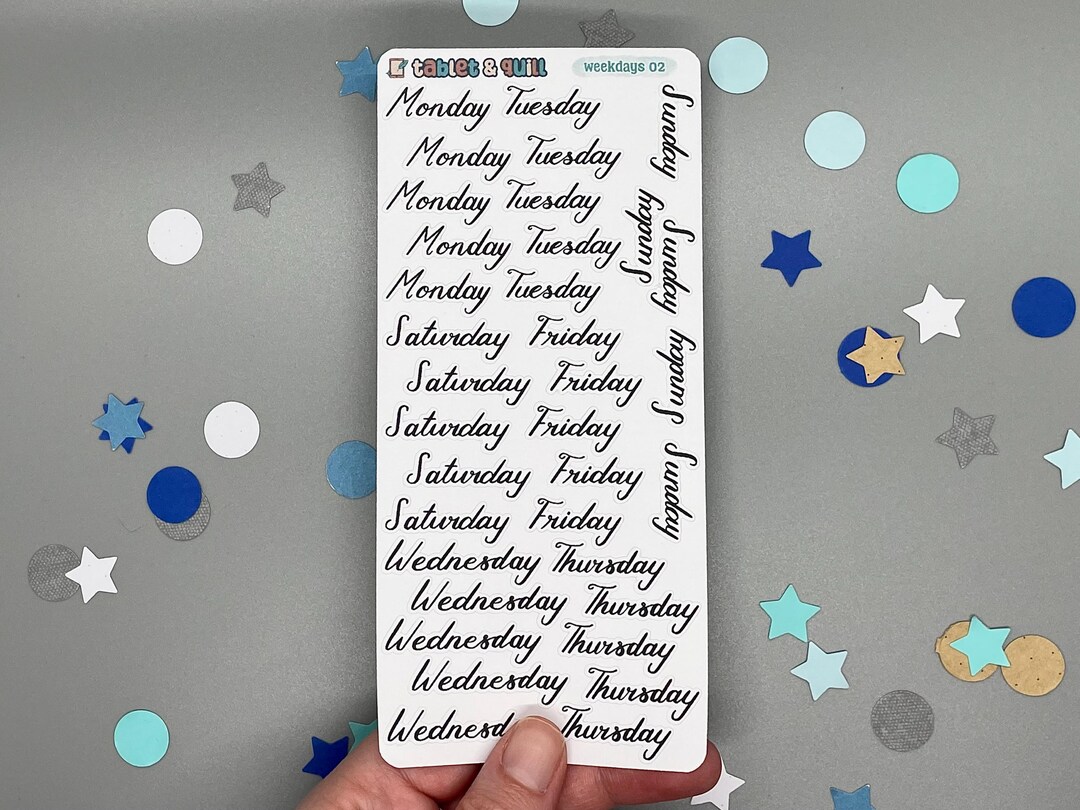 tablet & quill weekdays 02
Monday Tuesday
Monday Tuesday
Monday Tuesday
Monday Tuesday
Monday Tuesday
Saturday Friday
Saturday Friday
Saturday Friday
Saturday Friday
Saturday Friday
Wednesday Thursday
Wednesday Thursday
Wednesday Thursday
Wednesday Thursday
Wednesd Thursday
Sunday
Sunday
Sunday
Sunday
Sunday